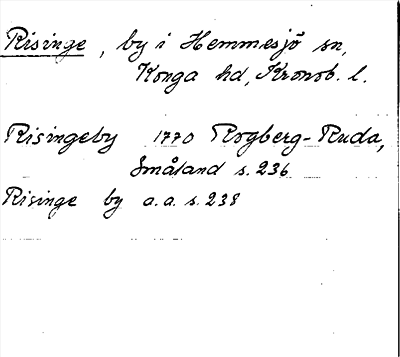 Risinge, by i Hemmesjö sn,
Konga hd, Kronob. l.
Risingeby 1770 Rogberg-Ruda,
Småland s. 236
Risinge by a.a. s. 238